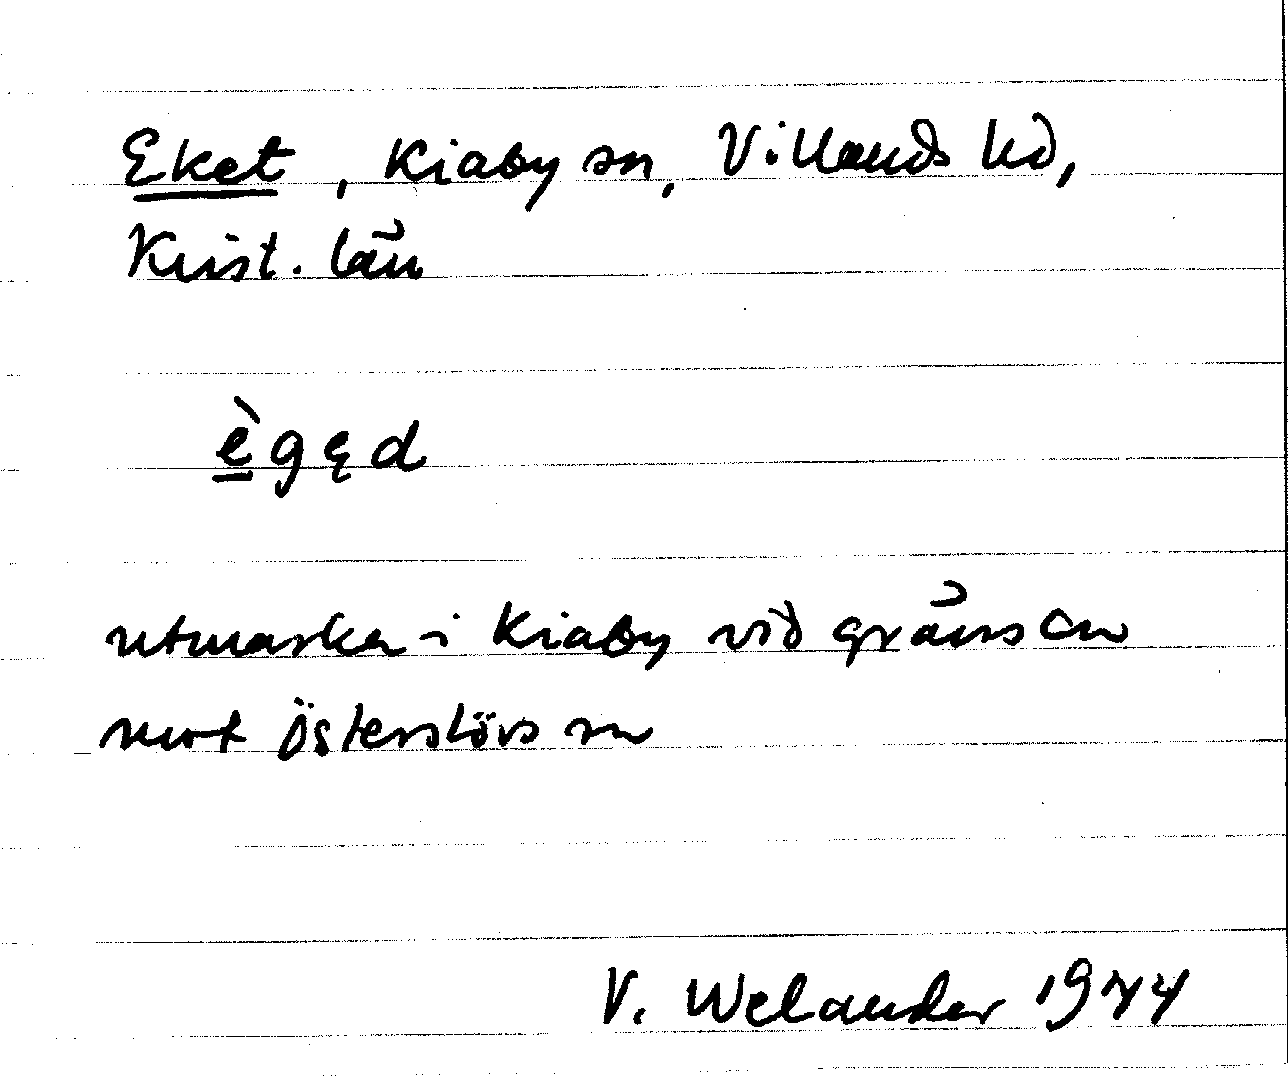 Eket, Kiaby sn, Villands hd,
Krist. län
è̲gęd
utmarker i Kiaby vid gränsen
mot Österslövs sn
V. Welander 1944